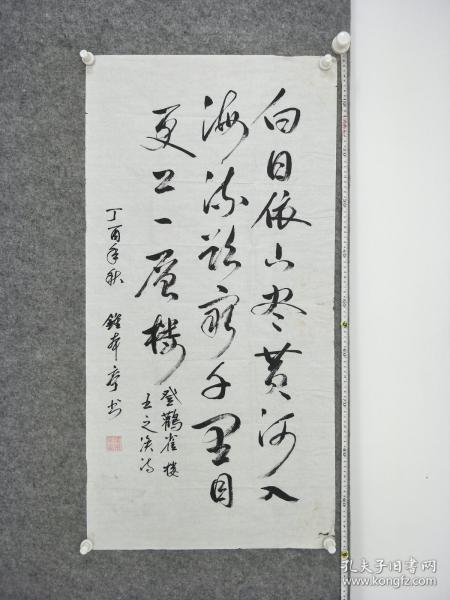 白日依山尽黄河入
海流欲穷千里目
更上一层楼
登鹳雀楼
王之涣诗
丁酉年秋
孔夫子旧书网
www.kongfz.com